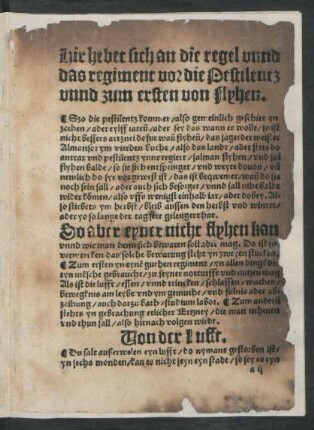 Hie hebet sich an die regel vnnd
das regiment vor die Pestilentz
vnnd zum ersten von flyhen.
¶ Szo die pestilentz kommet / also gemeinlich geschiet yn
zechen / aber eylff iaren / aber sey das wann er wolle / so ist
nicht bessers artznei dafur wan flyhen / das saget der weisser
Almansor ym vierden buche / also das lande / aber stete do
die pestilentz ynne regiert / salman flyhen / vnd sal
flyhen balde / so sie sich entspinget / vnd weyte douon / vn
noch sein fall / aber auch sich besorget / vnnd sall nihe balde
wider komen / also yffs wenigst einhalb iar / aber dobey. Al
so stiebets ym herbst / bleib aussen den herbst vnd winter
aber yo so lange der tag ste gelenget hat.
So aber eyner nicht flyhen kan
vnnd wie man denn sich bewaren soll adir mag. Do ist zu
vermercken das solche bewarung steht yn zweyen stucken.
¶ Zum ersten yn eynem guthen regiment / yn allen dingen die
eyn mensche gebraucht / zu seyner nottturfft vnd nutzen mag
Als ist die lufft / essen / vnnd trincken / schlaffen / wachen /
bewegknis am leybe vnd ym gemuthe / vnd fulnis oder
schibung / auch dar zu bath / stud ium labor. ¶ Zum andern
stehts yn gebrauchung etlicher Ertzney / die man nehmen
vnd thun sall / also hirnach volgen wirdt.
Von der lufft.
¶ Du salt auserwelen eyn lufft / do nymant gestorben ist /
yn sechs monden / kan es nicht seyn eyn stadt / so sey es eyn
a ij